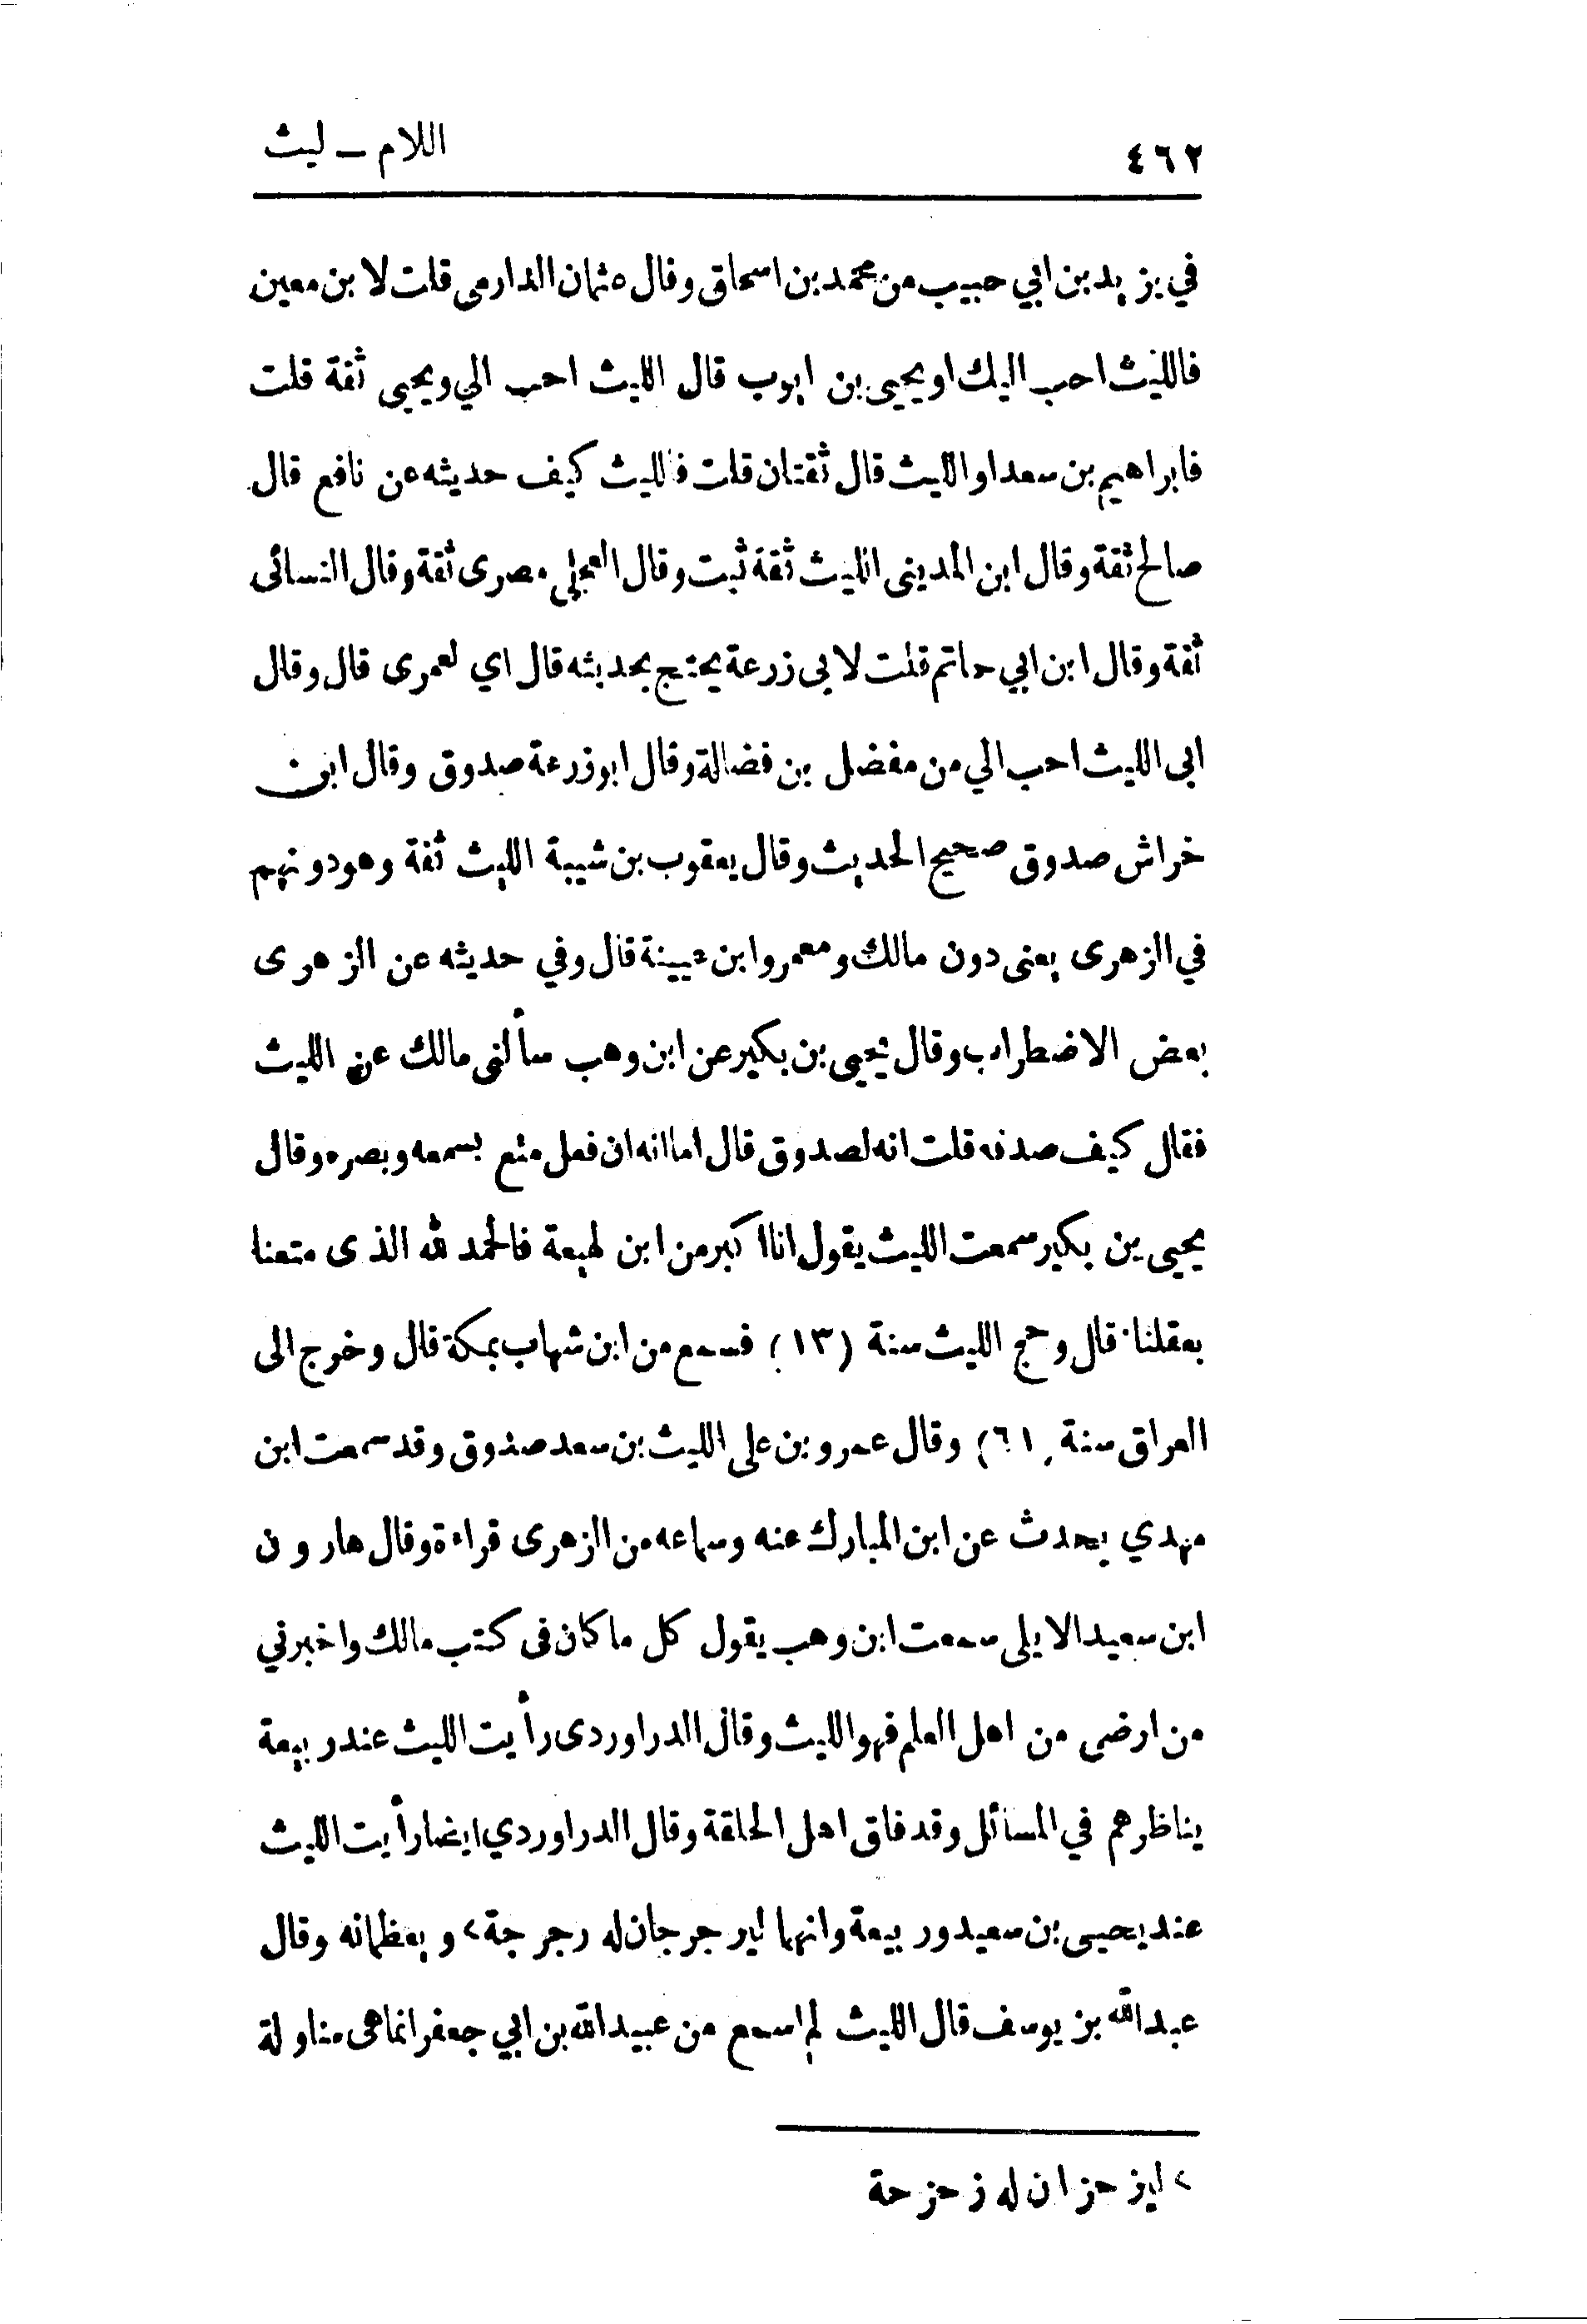 ٤٦٢
اللام – ليث
في يزيد بن ابي حبيب من محمد بن اسحاق وقال عثمان الدارمى قلت لابن معين
فالليث احب اليك او يحيى بن ايوب قال الليث احب الي ويحيى ثقة قلت
فابراهيم بن سعد او الليث قال ثقتان قلت فالليث كيف حديثه عن نافع قال
صالح ثقة وقال ابن المدينى الليث ثقة ثبت وقال العجلي مصرى ثقة وقال النسائى
ثقة وقال ابن ابي حاتم قلت لابى زرعة يحتج بحديثه قال اي لعمرى قال وقال
ابى الليث احب الي من مفضل بن فضالة وقال ابو زرعة صدوق وقال ابن
خراش صدوق صحيح الحديث وقال يعقوب بن شيبة الليث ثقة وهو دونهم
في الزهرى يعنى دون مالك ومعمر وابن عيينة قال وفي حديثه عن الزهرى
بعض الاضطراب وقال يحيى بن بكير عن ابن وهب سألنى مالك عن الليث
فقال كيف صدقه قلت انه لصدوق قال اما انه ان فعل متع بسمعه وبصره وقال
يحيى بن بكير سمعت الليث يقول انا اكبر من ابن لهيعة فالحمد لله الذى متعنا
بعقلنا قال وحج الليث سنة (١٣) فسمع من ابن شهاب بمكة قال وخرج الى
العراق سنة (٦١) وقال عمرو بن على الليث بن سعد صدوق وقد سمعت ابن
مهدي يحدث عن ابن المبارك عنه وسماعه من الزهرى قراءة وقال هارون
ابن سعيد الايلى سمعت ابن وهب يقول كل ما كان فى كتب مالك واخبرني
من ارضى من اهل العلم فهو الليث وقال الدراوردى رأيت الليث عند ربيعة
يناظرهم في المسائل وقد فاق اهل الحلقة وقال الدراوردي ايضا رأيت الليث
عند يحيى بن سعيد وربيعة وانهما ليرجرجان له رجرجة> ويعظمانه وقال
عبد الله بن يوسف قال الليث لم اسمع من عبيد الله بن ابي جعفر انما هى مناولة
> ليزحزان له زحزحة